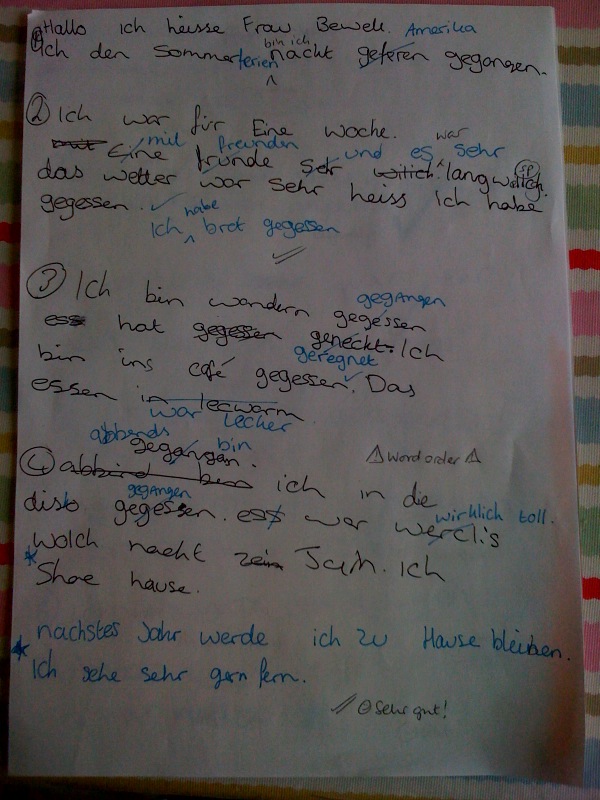 Hallo ich heisse Frau Bewek. Amerika
① Ich den Sommerferien bin ich nacht geferen gegangen.
② Ich war für Eine Woche. war
mit Eine mit freunden fründe Sehr und es sehr witich langweilich. sp
das wetter war sehr heiss Ich habe
gegessen. habe
Ich brot gegessen
③ Ich bin wandern gegessen gegangen
ess hat gegessen geneckt. Ich geregnet
bin ins café gegessen. Das
essen in lecwarm
war Lecher
abbends gegangan. bin
④ abbind bin ich in die ⚠ word order ⚠
disto gegessen gegangen. esst war werclis wirklich toll.
Wolch nacht zein Jarh. Ich
* Shae hause.
* nachstes Jahr werde ich zu Hause bleiben.
Ich sehe sehr gern fern.
Sehr gut!